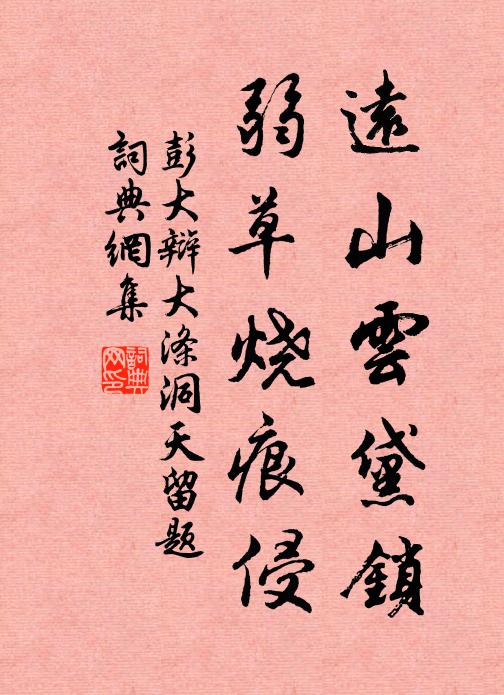 遠山雲黛鎖
弱草烧痕侵
彭大辯大涤洞天留题
詞典網集
詞典
网印